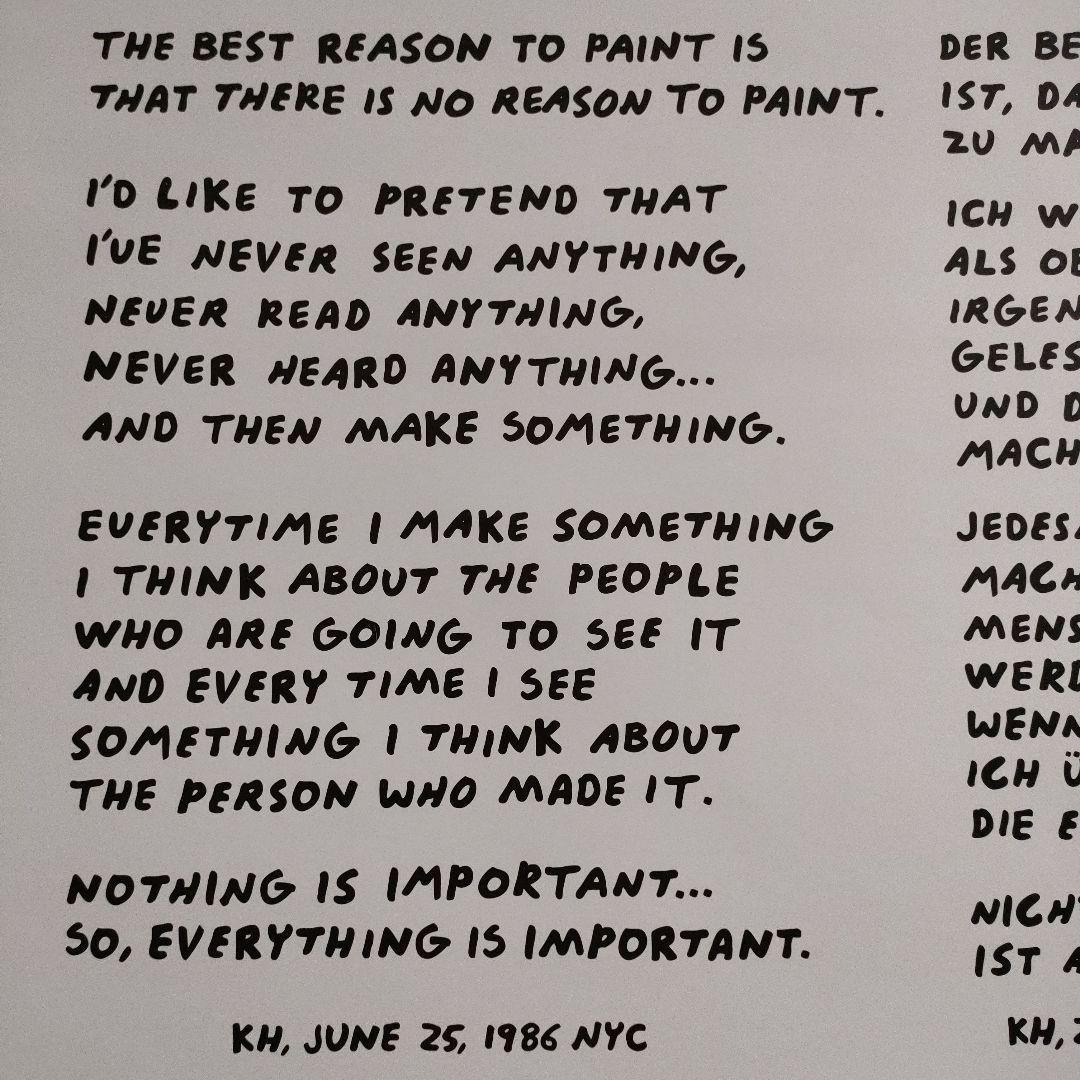 THE BEST REASON TO PAINT IS
THAT THERE IS NO REASON TO PAINT.
I'D LIKE TO PRETEND THAT
I'VE NEVER SEEN ANYTHING,
NEVER READ ANYTHING,
NEVER HEARD ANYTHING...
AND THEN MAKE SOMETHING.
EVERYTIME I MAKE SOMETHING
I THINK ABOUT THE PEOPLE
WHO ARE GOING TO SEE IT
AND EVERY TIME I SEE
SOMETHING I THINK ABOUT
THE PERSON WHO MADE IT.
NOTHING IS IMPORTANT...
SO, EVERYTHING IS IMPORTANT.
KH, JUNE 25, 1986 NYC
DER
IST,
ZU
ICH
ALS
UND
DIE
IST
KH,